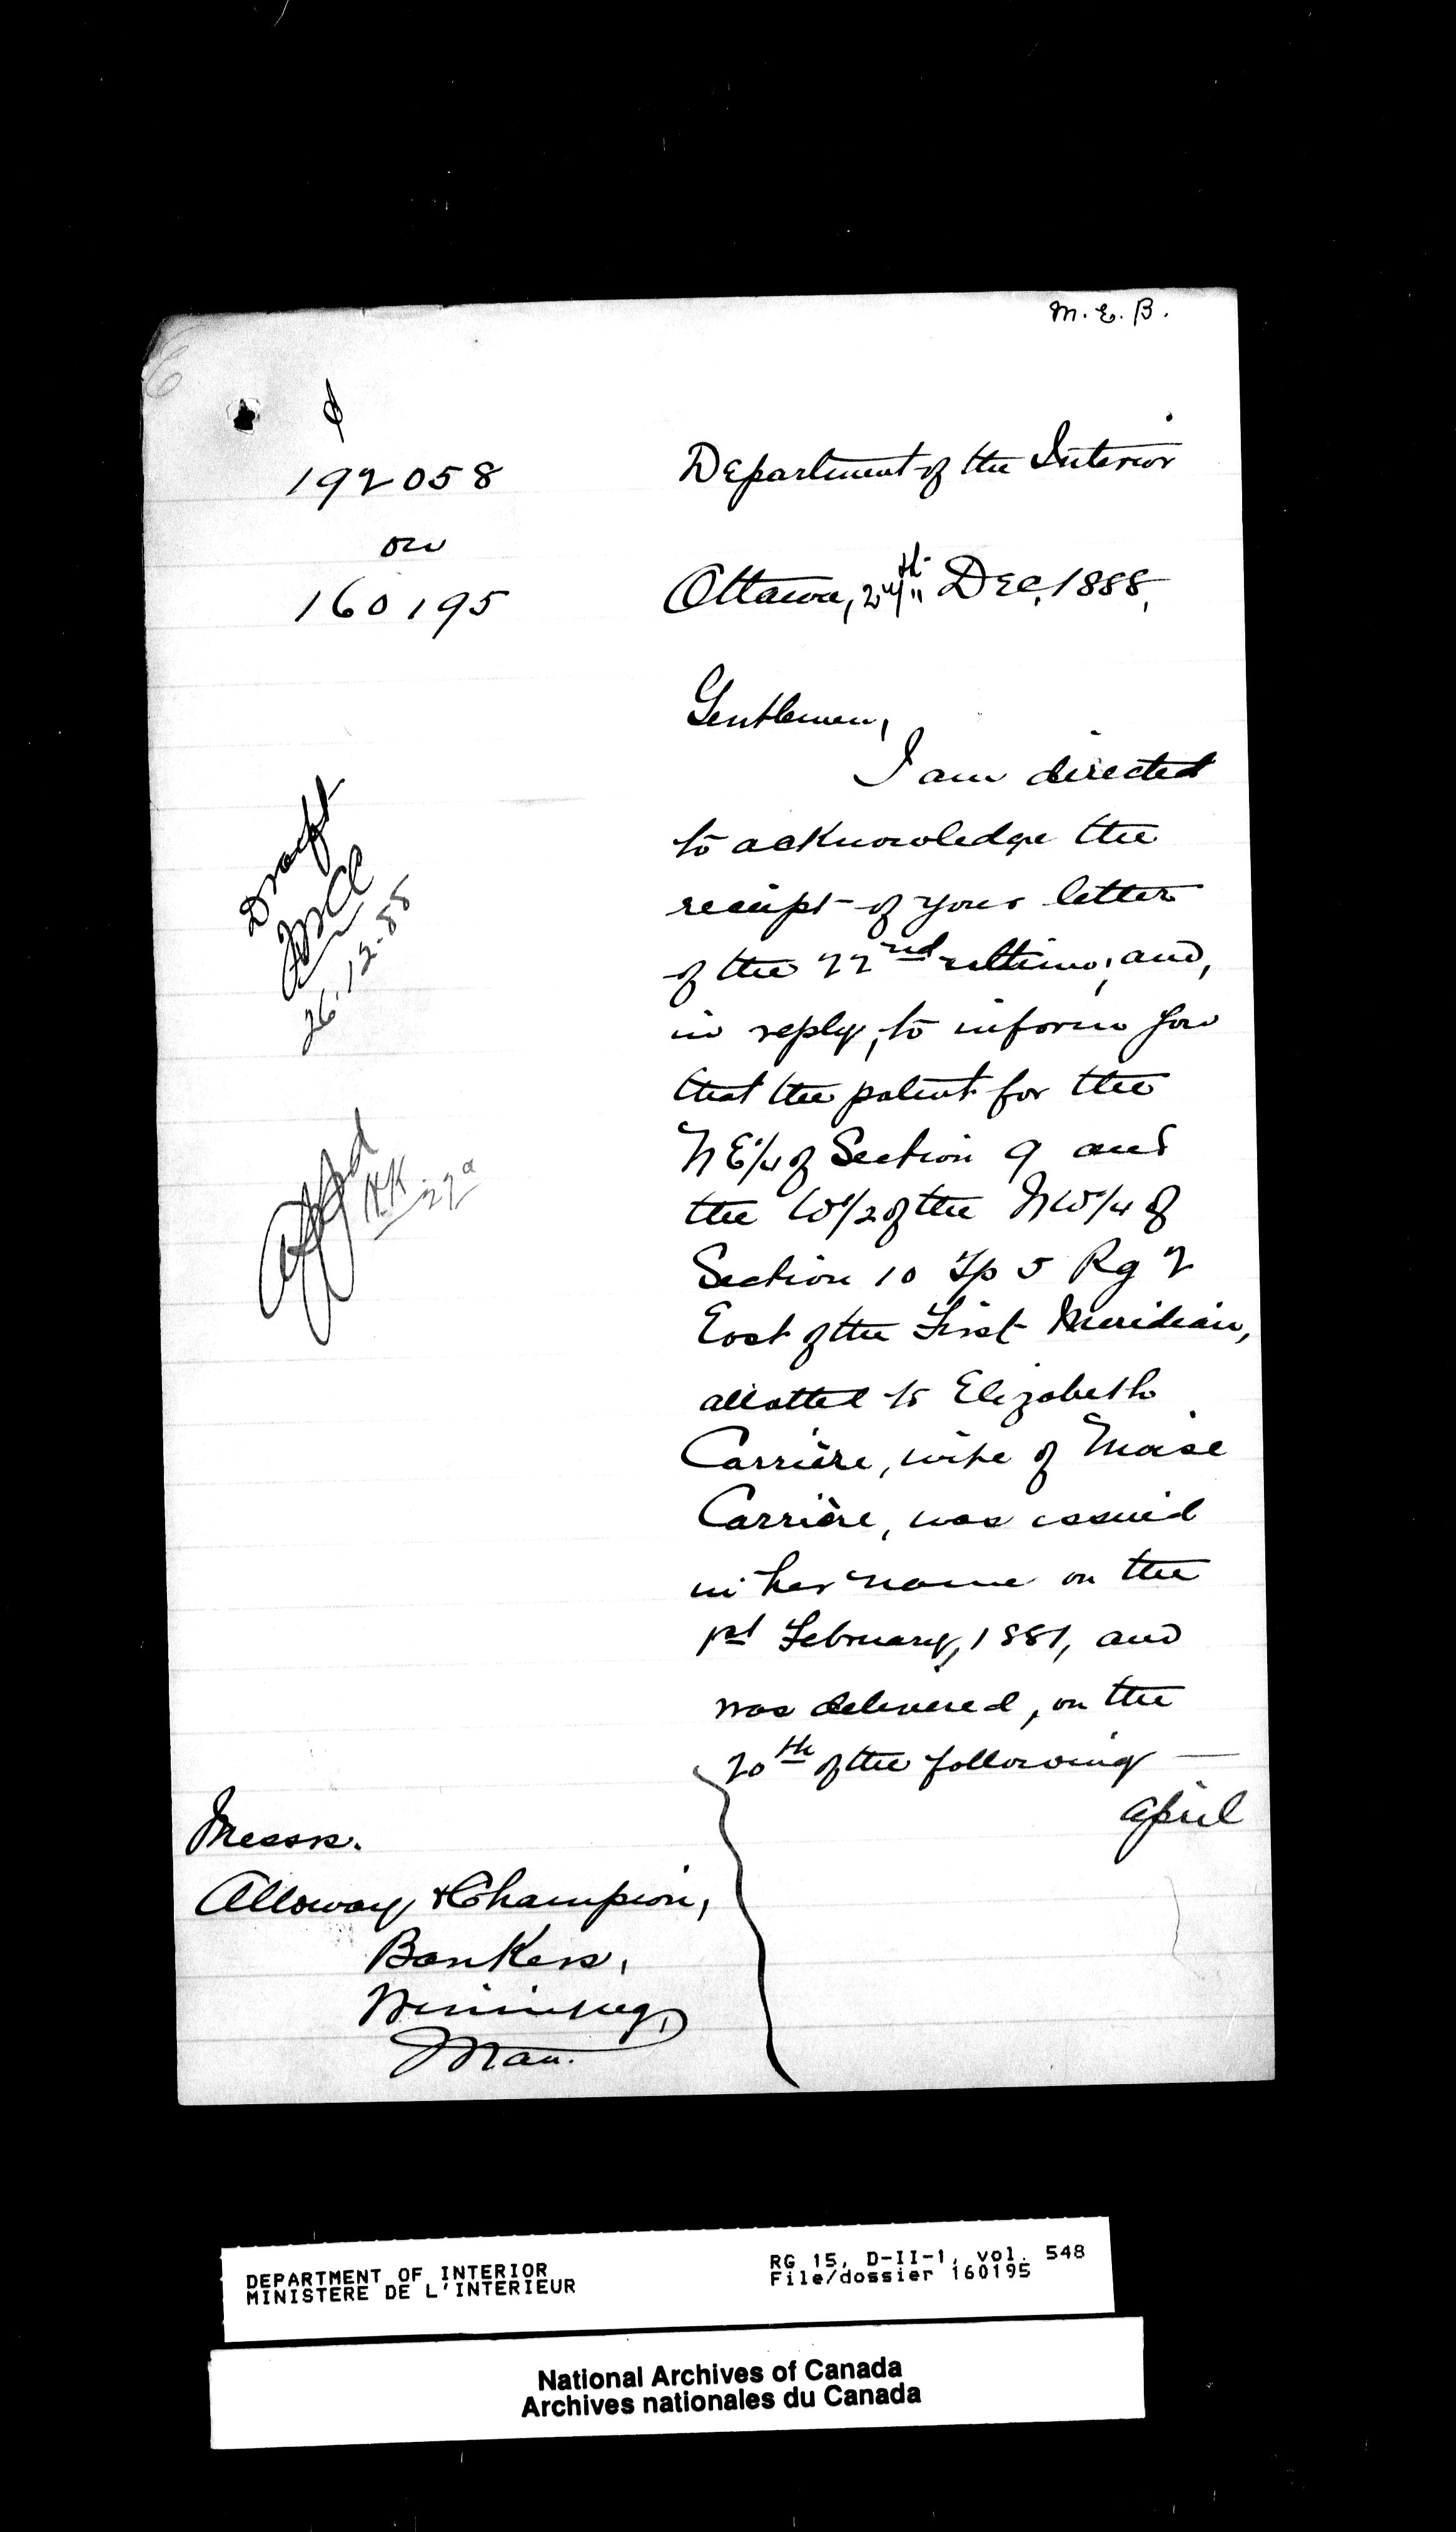 M. E. B.
192058
on
160195
Department of the Interior
Ottawa, 24th Dec, 1888,
Gentlemen,
I am directed
to acknowledge the
receipt of your letter
of the 22nd ultimo, and,
in reply, to inform you
that the patent for the
N E 1/4 of Section 9 and
the W 1/2 of the N W 1/4 of
Section 10 Tp 5 Rg 2
East of the First Meridian,
allotted to Elizabeth
Carrière, wife of Moise
Carrière, was issued
in her name on the
1st February, 1881, and
was delivered, on the
20th of the following —
April
Draft
26.12.88
Messrs.
Alloway & Champion,
Bankers,
Winnipeg,
Man.
DEPARTMENT OF INTERIOR
MINISTERE DE L'INTERIEUR
RG 15, D-II-1, vol. 548
File/dossier 160195
National Archives of Canada
Archives nationales du Canada